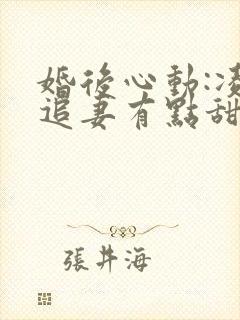 婚後心動:凌
追妻有點甜
張井海